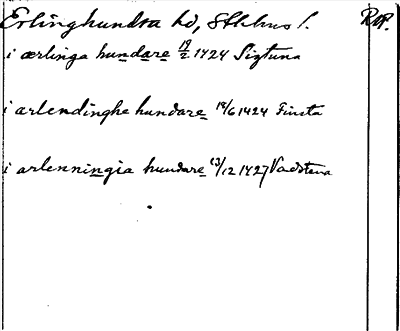 Erlinghundra hd, Sthlms l.
RAP.
i ærlinga hundare 19/2 1424 Sigtuna
i arlendinghe hundare 18/6 1424 Finsta
i arlenningia hundare 13/12 1427 Vadstena